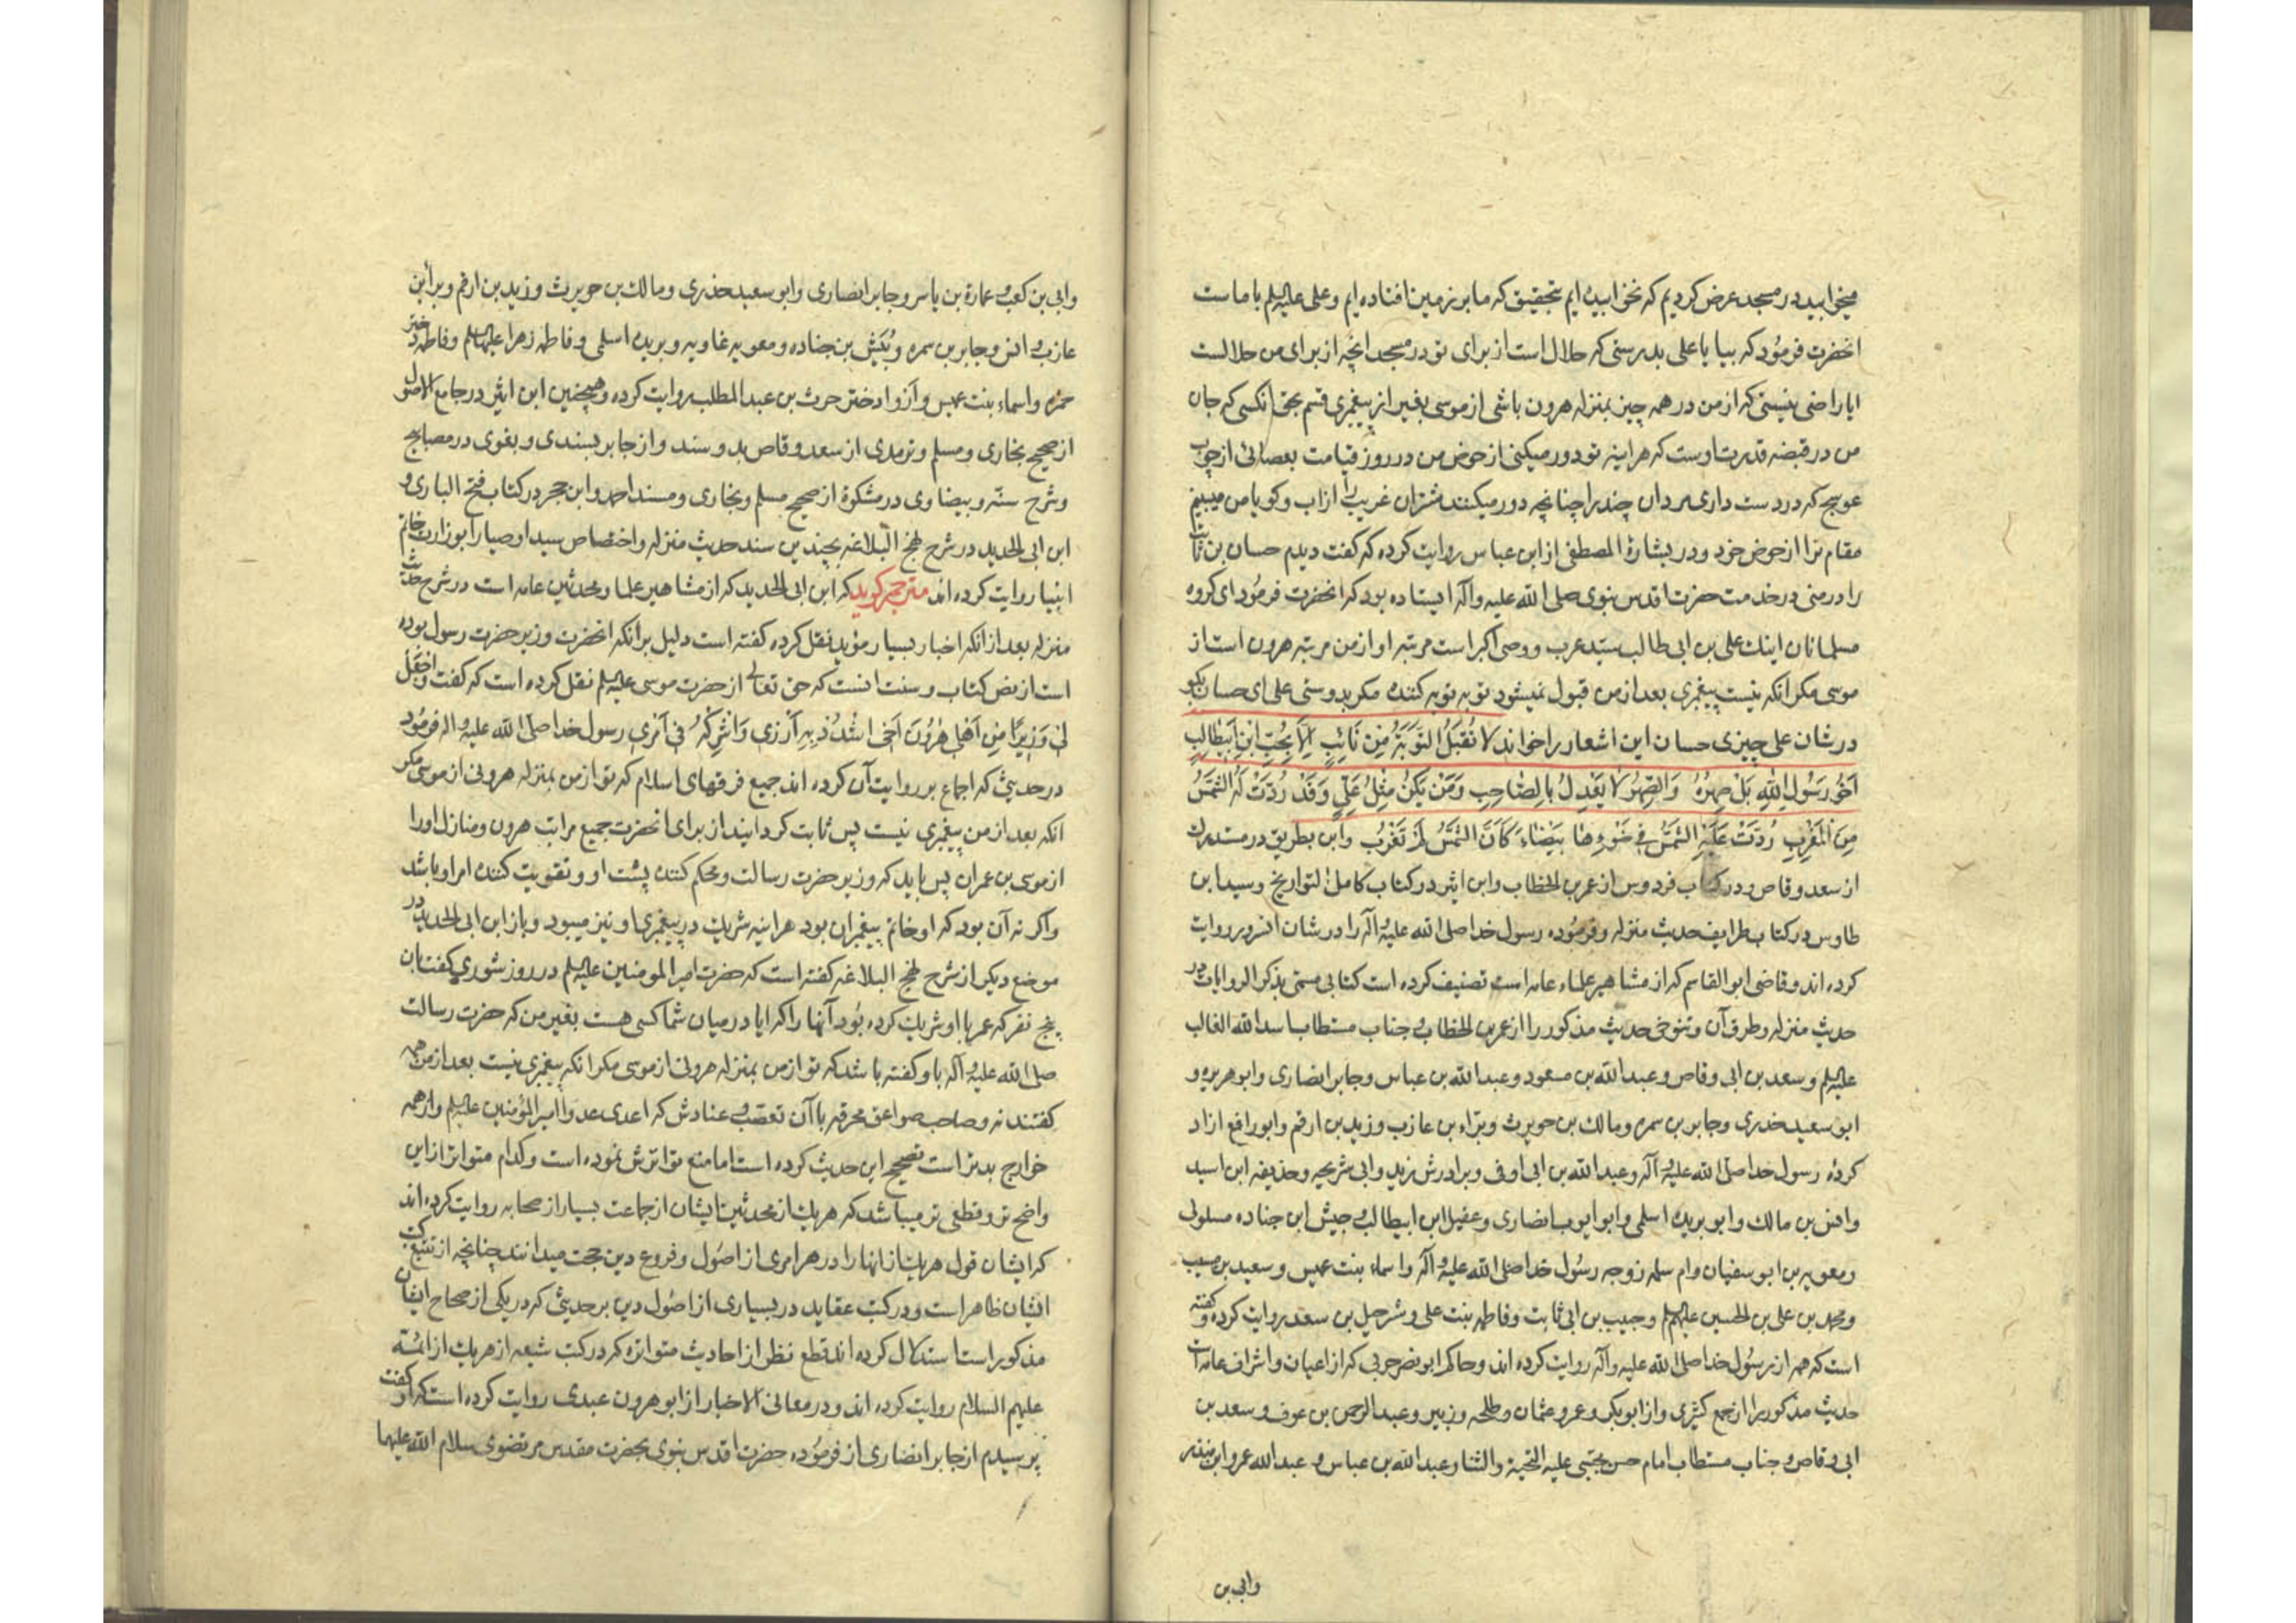 میخوابید در مسجد عرض کردیم که نخوابیده ایم بتحقیق که ما بر زمین افتاده ایم و علی علیه السلم با ماست
انحضرت فرمود که بیا یا علی بدرستی که حلال است از برای تو در مسجد انچه از برای من حلالست
ایا راضی نیستی که از من در همه چیز بمنزله هرون باشی از موسی بغیر از پیغمبری قسم بحق انکسی که جان
من در قبضه قدرت اوست که هراینه تو دور میکنی از حوض من در روز قیامت بعصائی از چوب
عوسج که در دست داری مردان چند را چنانچه دور میکنند شتران غریب را از اب و کویا من میبینم
مقام ترا از حوض خود و در بشارة المصطفی از ابن عباس روایت کرده که کفت دیدم حسان بن ثابت
را در منی در خدمت حضرت اقدس نبوی صلی الله علیه واله ایستاده بود که انحضرت فرمود ای کروه
مسلمانان اینک علی بن ابی طالب سید عرب و وصی اکبر است مرتبه او از من مرتبه هرون است از
موسی مکر انکه نیست پیغمبری بعد از من قبول نمیشود توبه توبه کننده مکر بدوستی علی ای حسان بکو
در شان علی چیزی حسان این اشعار را خواند لَا تُقْبَلُ التَّوْبَةُ مِنْ تَائِبٍ اِلَّا بِحُبِّ ابْنِ اَبِیطَالِبٍ
اَخُو رَسُولِ اللهِ بَلْ صِهْرُهُ وَالصِّهْرُ لَا یَعْدِلُ بِالصَّاحِبِ وَمَنْ یَکُنْ مِثْلَ عَلِیٍّ وَقَدْ رُدَّتْ لَهُ الشَّمْسُ
مِنَ الْمَغْرِبِ رُدَّتْ عَلَیْهِ الشَّمْسُ فِی ضَوْءِهَا بَیْضَاءَ کَاَنَّ الشَّمْسَ لَمْ تَغْرُبْ وابن بطریق در مستدرک
از سعد وقاص و در کتاب فردوس از عمر بن الخطاب وابن اثیر در کتاب کامل التواریخ وسید ابن
طاوس در کتاب طرایف حدیث منزله و فرموده رسول خدا صلی الله علیه واله را در شان انسرور روایت
کرده اند و قاضی ابو القاسم که از مشاهیر علماء عامه است تصنیف کرده است کتابی مسمی بذکر الروایات در
حدیث منزله و طرق آن و تنوخی حدیث مذکور را از عمر بن الخطاب و جناب مستطاب اسد الله الغالب
علیه السلم و سعد بن ابی وقاص و عبد الله بن مسعود و عبد الله بن عباس و جابر انصاری و ابوهریره و
ابو سعید خدری و جابر بن سمره و مالک بن حویرث و براء بن عازب و زید بن ارقم و ابو رافع ازاد
کرده رسول خدا صلی الله علیه واله و عبد الله بن ابی اوفی و برادرش زید و ابی شریحه و حذیفه ابن اسید
و انس بن مالک و ابو بریده اسلمی و ابو ایوب انصاری و عقیل ابن ابیطالب و جیش ابن جناده سلولی
و معویه بن ابو سفیان و ام سلمه زوجه رسول خدا صلی الله علیه واله و اسماء بنت عمیس و سعید بن مسیب
و محمد بن علی بن الحسین علیهم السلم و حبیب بن ابی ثابت و فاطمه بنت علی و شرحبیل بن سعد روایت کرده و کفته
است که همه از رسول خدا صلی الله علیه واله روایت کرده اند و حاکم ابو نصر حربی که از اعیان و اشراف عامه است
حدیث مذکور را از جمع کثیری و از ابوبکر و عمر و عثمان و طلحه و زبیر و عبد الرحمن بن عوف و سعد بن
ابی وقاص و جناب مستطاب امام حسن مجتبی علیه التحیة والثنا و عبد الله بن عباس و عبد الله عمر و ابن منذر
وابی بن
وابی بن کعب و عمارة بن یاسر و جابر انصاری و ابو سعید خدری و مالک بن حویرث و زید بن ارقم و براء بن
عازب و انس و جابر بن سمره و بن جناده و معویه غاویه و بریده اسلمی و فاطمه زهرا علیها السلم و فاطمه دختر
حمزه و اسماء بنت عمیس و اروا دختر حرث بن عبد المطلب روایت کرده و همچنین ابن اثیر در جامع الاصول
از صحیح بخاری و مسلم و ترمدی از سعد وقاص بدو سند و از جابر بسندی و بغوی در مصابیح
و شرح سنه و بیضاوی در مشکوة از صحیح مسلم و بخاری و مسند احمد و ابن حجر در کتاب فتح الباری و
ابن ابی الحدید در شرح نهج البلاغه بچندین سند حدیث منزله و اختصاص سید اوصیا را بوزارت خاتم
انبیا روایت کرده اند مترجم کوید که ابن ابی الحدید که از مشاهیر علما و محدثین عامه است در شرح حدیث
منزله بعد از انکه اخبار بسیار مؤید نقل کرده کفته است دلیل بر انکه انحضرت وزیر حضرت رسول بوده
است از نص کتاب و سنت انست که حق تعالی از حضرت موسی علیه السلم نقل کرده است که کفت وَاجْعَلْ
لِی وَزِیرًا مِنْ اَهْلِی هٰرُونَ اَخِی اشْدُدْ بِهِ اَزْرِی وَاَشْرِکْهُ فِی اَمْرِی رسول خدا صلی الله علیه واله فرمود
در حدیثی که اجماع بر روایت آن کرده اند جمیع فرقهای اسلام که تو از من بمنزله هرونی از موسی مکر
انکه بعد از من پیغمبری نیست پس ثابت کردانید از برای انحضرت جمیع مراتب هرون و منازل او را
از موسی بن عمران پس باید که وزیر حضرت رسالت و محکم کننده پشت او و تقویت کننده امر او باشد
و اکر نه آن بود که او خاتم پیغمبران بود هراینه شریک در پیغمبری او نیز میبود و باز ابن ابی الحدید در
موضع دیکر از شرح نهج البلاغه کفته است که حضرت امیر المومنین علیه السلم در روز شوری کفت بان
پنج نفر که عمر با او شریک کرده بود آنها را که ایا در میان شما کسی هست بغیر من که حضرت رسالت
صلی الله علیه واله باو کفته باشد که تو از من بمنزله هرونی از موسی مکر انکه پیغمبری نیست بعد از من همه
کفتند نه و صاحب صواعق محرقه با آن تعصب و عنادش که اعدی عدو امیر المؤمنین علیه السلم و از همه
خوارج بدتر است تصحیح این حدیث کرده است اما منع تواترش نموده است و کدام متواتر از این
واضح تر و قطعی تر میباشد که هریک از محدثین ایشان از جماعت بسیار از صحابه روایت کرده اند
که ایشان قول هریک از انها را در هر امری از اصول و فروع دین حجت میدانند چنانچه از تتبع کتب
ایشان ظاهر است و در کتب عقاید در بسیاری از اصول دین بر حدیثی که در یکی از صحاح ایشان
مذکور است استدلال کرده اند قطع نظر از احادیث متواتره که در کتب شیعه از هریک از ائمه
علیهم السلام روایت کرده اند و در معانی الاخبار از ابو هرون عبدی روایت کرده است که او کفت
پرسیدم از جابر انصاری از فرموده حضرت اقدس نبوی بحضرت مقدس مرتضوی سلام الله علیهما